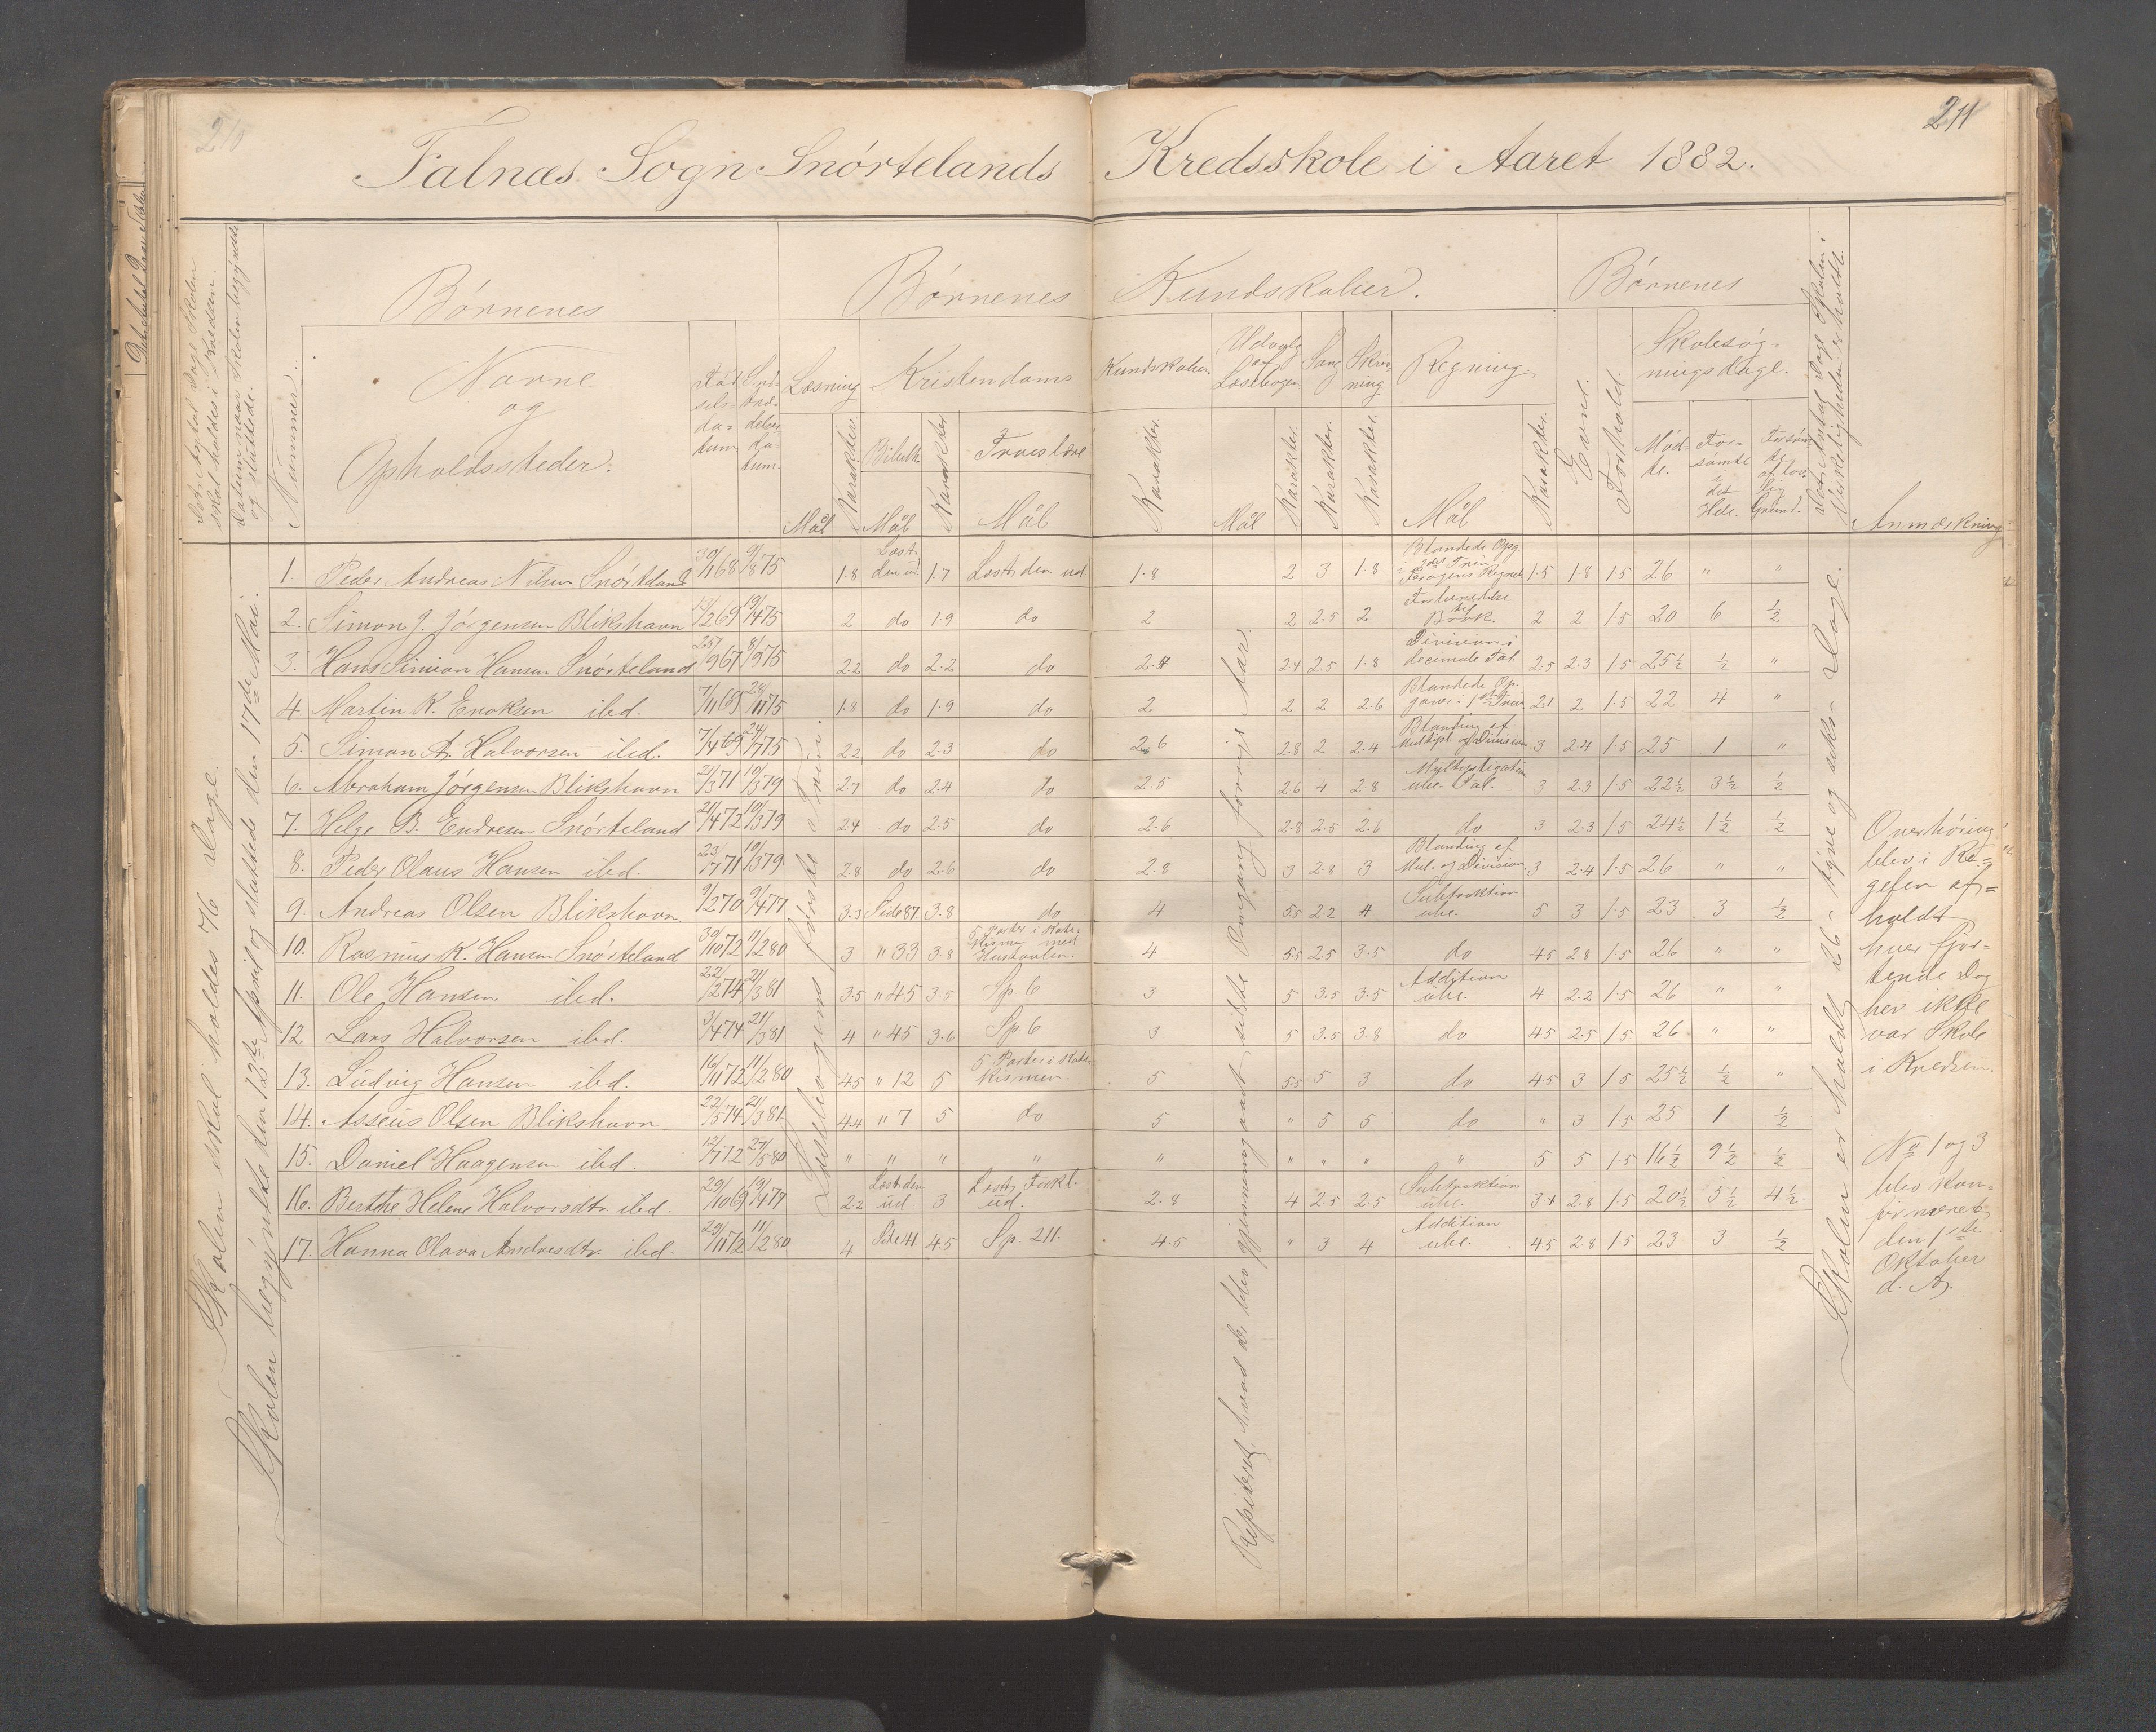 210
211
Falnæs Sogn Snørtelands Kredsskole i Aaret 1882.
Det Antal Dage Skolen skal holdes i Kredsen.
Datum naar Skolen begyndte og sluttede.
Nummer.
Børnenes
Navne
og
Opholdssteder.
Fød
sels-
da-
tum.
Ind-
træ-
delses
da-
tum.
Børnenes Kundskaber.
Læsning
Mål
Karakter.
Kristendoms Kundskaber.
Bibelh.
Mål
Karakter.
Troeslære
Mål
Karakter
Udvalg
af
Læsebogen
Mål
Karakter.
Sang
Karakter.
Skriv
ning
Karakter.
Regning
Mål
Karakter.
Børnenes
Evne.
Forhold.
Skolesøg-
ningsdage.
Mød-
te.
For-
sømte
i
det
Hele.
Forsøm
te
af lov
lig
Grund.
Det Antal Dage Skolen i Virkeligheden er holdt.
Anmærkning
Skolen skal holdes 76 Dage.
Skolen begyndte den 12te April og sluttede den 17de Mai.
Læsebogens første Trin.
Repiteret hvad der blev gjennemgaaet sidste Omgang forrige Aar.
Skolen er holdt 26 - tyve og seks - Dage.
1. Peder Andreas Nilsen Snørteland 30/11 68 9/8 75 1.8 Læst den ud. 1.7 Læst den ud 1.8 2 3 1.8 Blandede Opg. i 2det Trin Regneb. 1.5 1.8 1.5 26 " "
2. Simon J. Jørgensen Blikshavn 13/2 69 19/4 75 2 do 1.9 do 2 2 2.5 2 Forberedelse til Brøk. 2 2 1.5 20 6 ½
3. Hans Simion Hansen Snørteland 25/9 67 8/9 75 2.2 do 2.2 do 2.4 2.4 2.5 1.8 Division i decimale Tal. 2.5 2.3 1.5 25½ ½ "
4. Martin K. Enoksen ibd. 7/11 69 28/11 75 1.8 do 1.9 do 2 2 2 2.6 Blandede Opgaver i 1ste Trin 2.1 2 1.5 22 4 "
5. Simon A. Halvorsen ibd. 7/4 69 24/11 75 2.2 do 2.3 do 2.6 2.8 2 2.4 Blanding af Multipl. og Division 3 2.4 1.5 25 1 "
6. Abraham Jørgensen Blikshavn 21/3 71 19/3 79 2.7 do 2.4 do 2.5 2.6 4 2.8 Multipligation ube. Tal. 3 2.3 1.5 22½ 3½ ½
7. Helge B. Endresen Snørteland 21/4 72 19/3 79 2.4 do 2.5 do 2.6 2.8 2.5 2.6 do 3 2.3 1.5 24½ 1½ ½
8. Peder Olaus Hansen ibd. 23/7 71 19/3 79 2.8 do 2.6 do 2.8 3 2.8 3 Blanding af Mul. og Division 3 2.4 1.5 26 " "
9. Andreas Olsen Blikshavn 9/2 70 9/4 77 3.3 Side 87 3.8 do 4 5.5 2.2 4 Subtraktion ube. 5 3 1.5 23 3 ½
10. Rasmus K. Hansen Snørteland 30/10 72 11/2 80 3 " 33 3.8 5 Parter i Katekismen med Hustavlen. 4 5.5 2.5 3.5 do 4.5 2.8 1.5 26 " "
11. Ole Hansen ibd. 22/2 74 21/3 81 3.5 " 45 3.5 Sp. 6 3 5 3.5 3.5 Addition ube. 4 2.2 1.5 26 " "
12 Lars Halvorsen ibd. 3/4 74 21/3 81 4 " 45 3.6 Sp. 6 3 5 3.5 3.8 do 4.5 2.5 1.5 26 " "
13. Ludvig Hansen ibd. 16/11 72 11/2 80 4.5 " 12 5 5 Parter i Katekismen. 5 5.5 5 3 do 4.5 3 1.5 25½ ½ "
14. Asseus Olsen Blikshavn 22/5 74 21/3 81 4.4 " 7 5 do 5 " 5 5 do " 3 1.5 25 1 ½
15. Daniel Haagensen ibd. 12/7 72 27/5 80 " " " " " " " " " 5 5 1.5 16½ 9½ ½
16. Berthe Helene Halvorsdtr. ibd. 29/10 69 19/4 77 2.2 Læst den ud. 3 Læst Forkl. ud. 2.8 4 2.5 2.5 Subtraktion ube. 3.4 2.8 1.5 20½ 5½ 4½
17. Hanna Olava Andreasdtr. ibd. 29/11 72 11/2 80 4 Side 41 4.5 Sp. 211. 4.5 " 3 4 Addition ube. 4.5 2.8 1.5 23 3 ½
Overhøring
blev i Re-
gelen af-
holdt
hver fjor-
tende Dag
her ikke
var Skole
i Kredsen.
No 1 og 3
blev kon-
firmeret
den 1ste
Oktober
d. A.